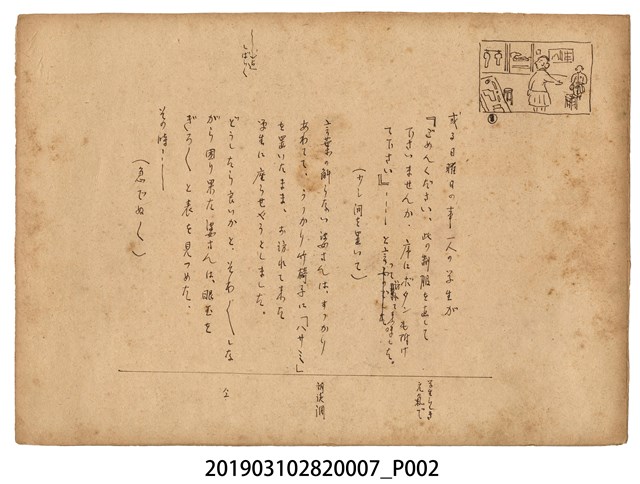 或る日曜日の事一人の学生が
『ごめんください、此の制服を直して
下さいませんか、序にボタンも付け
て下さい』・・・と言つて
ました。
(少し間を置いて)
言葉の解らない婆さんは、すつかり
あわてて、うつかり竹椅子に「ハサミ」
を置いたまま、お連れして来た
学生に座らせやうとしました。
どうしたら良いかと、そわ〳〵しな
がら困り果た婆さんは、眼玉を
ぎろ〳〵と表を見つめた・
その時・・・
(急でぬく)
元気で
仝
201903102820007_P002